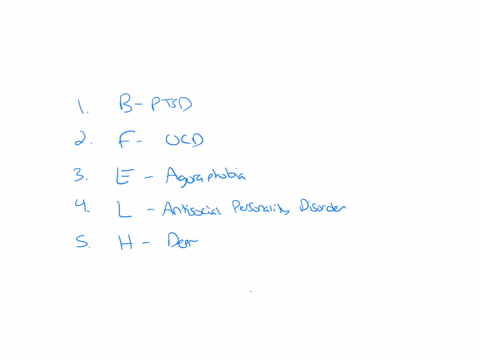 1. B - PTSD
2. F - OCD
3. E - Agoraphobia
4. L - Antisocial Personality Disorder
5. H - Dep